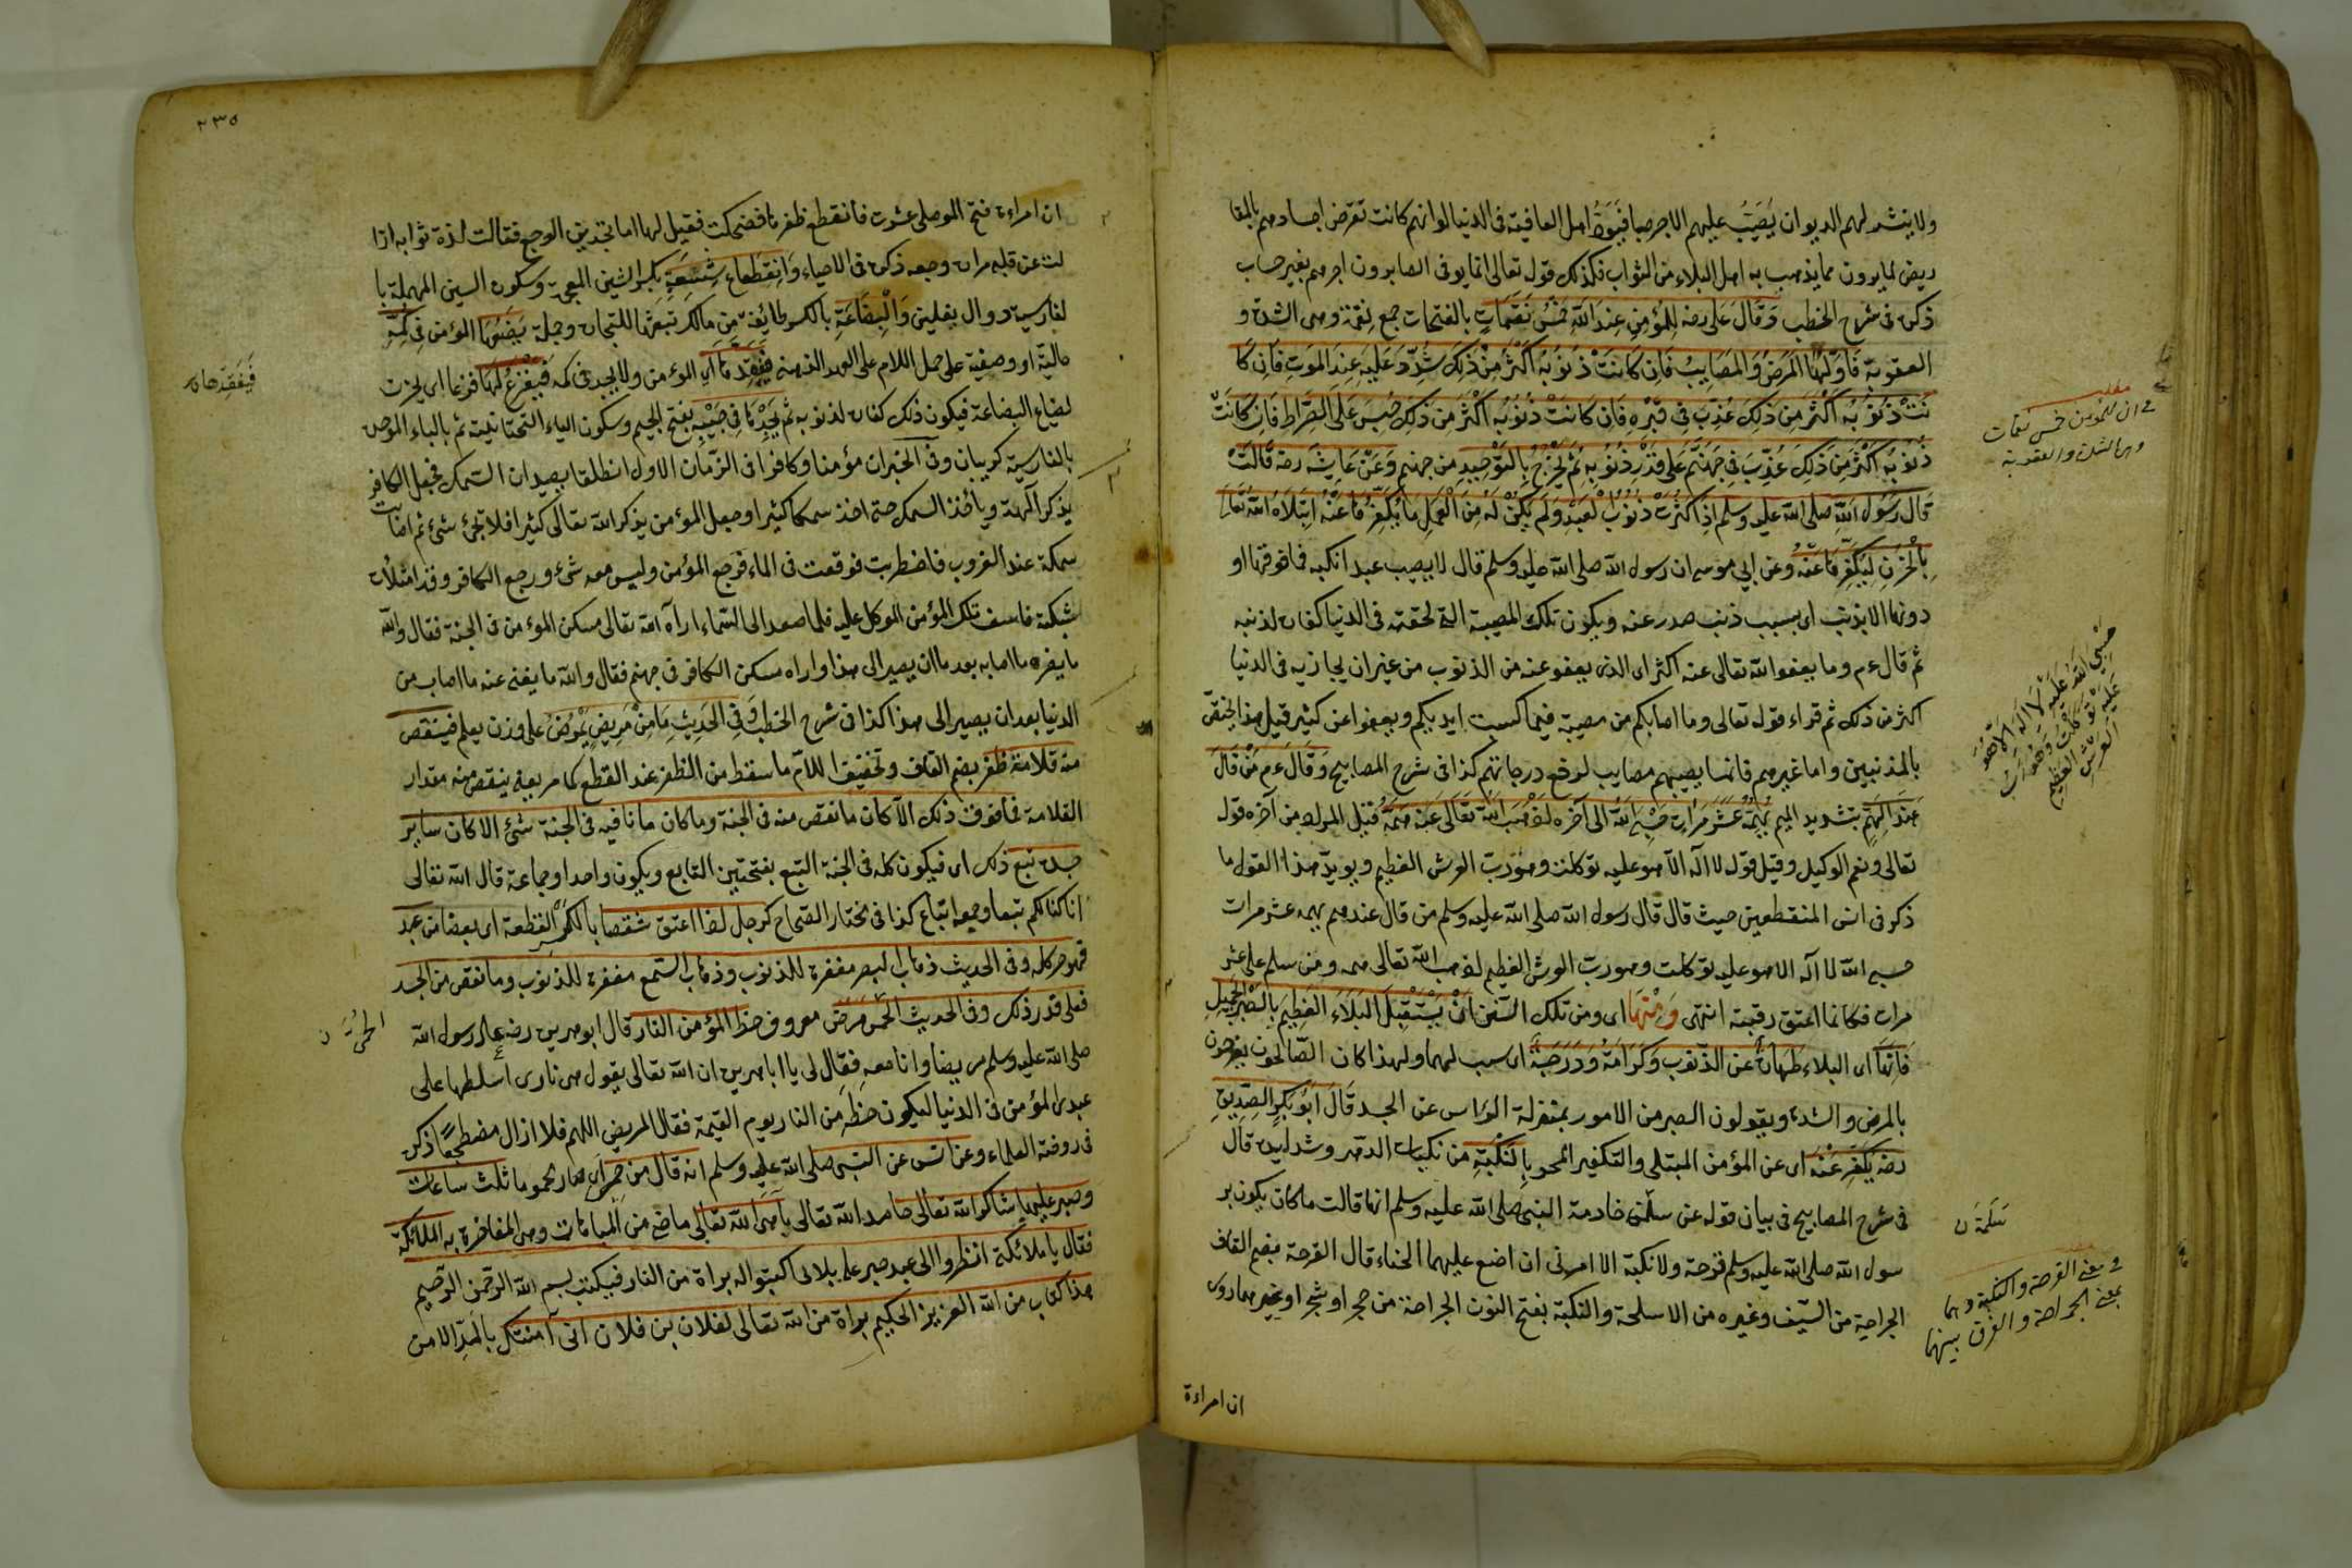 ولا ينشر لهم الديوان يصب عليهم الاجر صبا فيود اهل العافية فى الدنيا لو انهم كانت تقرض اجسادهم بالمقا
ريض لما يرون مما يذهب به اهل البلاء من الثواب فكذلك قوله تعالى انما يوفى الصابرون اجرهم بغير حساب
ذكره فى شرح الخطب وَقَالَ عَلى رضه لِلْمُؤْمِنِ عِنْدَ اللّهِ خَمْسُ نَقَمَاتٍ بالفتحات جمع نقمة وهى الشدة و
العقوبة فَاَوَّلُهَا الْمَرَضُ وَالْمَصَايِبُ فَاِنْ كَانَتْ ذُنُوْبُهُ اَكْثَرَ مِنْ ذٰلِكَ شُدِّدَ عَلَيْهِ عِنْدَ الْمَوْتِ فَاِنْ كَا
نَتْ ذُنُوْبُهُ اَكْثَرَ مِنْ ذٰلِكَ عُذِّبَ فِى قَبْرِهِ فَاِنْ كَانَتْ ذُنُوْبُهُ اَكْثَرَ مِنْ ذٰلِكَ حُبِسَ عَلَى الصِّرَاطِ فَاِنْ كَانَتْ
ذُنُوْبُهُ اَكْثَرَ مِنْ ذٰلِكَ عُذِّبَ فِى جَهَنَّمَ عَلٰى قَدْرِ ذُنُوْبِهِ ثُمَّ يُخْرَجُ بِالتَّوْحِيْدِ من جهنم وَعَنْ عَايِشَه رضه قَالَتْ
قَالَ رَسُوْلُ اللّهِ صلى الله عليه وسلم اِذَا كَثُرَتْ ذُنُوْبُ الْعَبْدِ وَلَمْ يَكُنْ لَهُ مِنَ الْعَمَلِ مَا يُكَفِّرُهَا عَنْهُ ابْتَلَاهُ اللّهُ تَعَالٰى
بِالْحُزْنِ لِيُكَفِّرَهَا عَنْهُ وعن ابى موسى ان رسول الله صلى الله عليه وسلم قال لا يصيب عبدا نكبة فما فوقها او
دونها الا بذنب اى بسبب ذنب صدر عنه ويكون تلك المصيبة التى لحقته فى الدنيا كفارة لذنبه
ثم قال ءم وما يعفوا الله تعالى عنه اكثر اى الذى يعفو عنه من الذنوب من غير ان يجازيه فى الدنيا
اكثر من ذلك ثم قراء قوله تعالى وما اصابكم من مصيبة فبما كسبت ايديكم ويعفوا عن كثير قيل هذا يختص
بالمذنبين واما غيرهم فانما يصيبهم مصايب لرفع درجاتهم كذا فى شرح المصابيح وَقَالَ ءم مَنْ قَالَ
عِنْدَ الْهَمِّ بتشديد الميم يُهِمُّهُ عَشْرَ مَرَّاتٍ حَسْبِىَ اللّهُ الى آخره لَذَهَبَ اللّهُ تَعَالٰى عَنْهُ هَمَّهُ قيل المراد من آخره قوله
تعالى ونعم الوكيل وقيل قوله لا اله الا هو عليه توكلت وهو رب العرش العظيم ويؤيد هذا القول ما
ذكر فى انس المنقطعين حيث قال قال رسول الله صلى الله عليه وسلم من قال عند هم يهمه عشر مرات
حسبى الله لا اله الا هو عليه توكلت وهو رب العرش العظيم لذهب الله تعالى همه ومن سلم على عشر
مرات فكانما اعتق رقبة انتهى وَمِنْهَا اى ومن تلك السنن اَنْ يَسْتَقْبِلَ الْبَلَاءَ الْعَظِيْمَ بِالصَّبْرِ الْجَمِيْلِ
فَاِنَّهَا اى البلاء طَهَارَةٌ عَنِ الذُّنُوْبِ وَكَرَامَةٌ وَدَرَجَةٌ اى سبب لهما ولهذا كان الصالحون يفرحون
بالمرض والشدة ويقولون الصبر من الامور بمنزلة الراس عن الجسد قَالَ اَبُوْ بَكْرٍ الصِّدِّيْقِ
رضه يُكَفَّرُ عَنْهُ اى عن المؤمن المبتلى والتكفير المحو بِالنَّكْبَةِ من نكبات الدهر وشدايده قال
فى شرح المصابيح فى بيان قوله عن سلمى خادمة النبى صلى الله عليه وسلم انها قالت ما كان يكون بر
سول الله صلى الله عليه وسلم قرحة ولا نكبة الا امرنى ان اضع عليهما الحناء قال القرحة بضم القاف
الجراحة من السيف وغيره من الاسلحة والنكبة بفتح النون الجراحة من حجر او شجر او غيرهما روى
ان امراءة
مطلب
فى ان للمؤمن خمس نقمات
وهى الشدة والعقوبة
حَسْبِىَ اللّهُ لَا اِلٰهَ اِلَّا هُوَ
عَلَيْهِ تَوَكَّلْتُ وَهُوَ رَبُّ
الْعَرْشِ الْعَظِيْمِ
فى معنى القرحة والنكبة وهما
بمعنى الجراحة والفرق بينهما
٢٣٥
ان امراءة فتح الموصلى عثرت فانقطع ظفرها فضحكت فقيل لها اما تجدين الوجع فقالت لذة ثوابه ازا
لت عن قلبى مرارة وجعه ذكره فى الاحياء وَانْقِطَاعِ شِسْعِهِ بكسر الشين المعجمة وسكون السين المهملة با
لفارسية دوال نعلين وَالْبِضَاعَةِ بالكسر طائفة من مالك تبعثها للتجارة وجملة يَضَعُهَا المؤمن فِى كُمِّهِ
حالية او وصفية على حمل اللام على العهد الذهنى فَيَفْقِدُهَا اى المؤمن ولا يجد فى كمه فَيَفْزَعُ لَهَا فزعا اى يحزن
لضياع البضاعة فيكون ذلك كفارة لذنوبه ثم يَجِدُهَا فِى جَيْبِهِ بفتح الجيم وسكون الياء التحتانية ثم بالباء الموحدة
بالفارسية كريبان وفى الخبر ان مؤمنا وكافرا فى الزمان الاول انطلقا يصيدان السمك فجعل الكافر
يذكر آلهته ويأخذ السمك حتى اخذ سمكا كثيرا وجعل المؤمن يذكر الله تعالى كثيرا فلا تجئ شئ ثم اصابت
سمكة عند الغروب فاضطربت فوقعت فى الماء فرجع المؤمن وليس معه شئ ورجع الكافر وقد امتلأت
شبكته فاسف ملك المؤمن الموكل عليه فلما صعد الى السماء اراه الله تعالى مسكن المؤمن فى الجنة فقال والله
ما يضره ما اصابه بعد ما ان يصير الى هذا واراه مسكن الكافر فى جهنم فقال والله ما يغنى عنه ما اصاب من
الدنيا بعد ان يصير الى هذا كذا فى شرح الخطب وَفِى الْحَدِيْثِ مَا مِنْ مَرِيْضٍ يَمْرَضُ على وزن يعلم فينقص
منه قلامة ظفر بضم القاف وتخفيف اللام ما سقط من الظفر عند القطع كما مر يعنى ينقص منه مقدار
القلامة فما فوق ذلك الا كان ما نقص منه فى الجنة وما كان مانا فيه فى الجنة شئ الا كان ساير
جسده تبع ذلك اى فيكون كله فى الجنة التبع بفتحتين التابع ويكون واحدا وجماعة قال الله تعالى
انا كنا لكم تبعا وجمعه اتباع كذا فى مختار الصحاح كرجل لو اعتق شقصا بالكسر القطعة اى بعضا من عبد
فهو حر كله وفى الحديث ذهاب البصر مغفرة للذنوب وذهاب السمع مغفرة للذنوب وما نقص من الجسد
فعلى قدر ذلك وفى الحديث الحمى مرض معروف حظ المؤمن من النار قال ابو هريرة رضه عاد رسول الله
صلى الله عليه وسلم مريضا وانا معه فقال لى يا ابا هريرة ان الله تعالى يقول هى نارى اسلطها على
عبدى المؤمن فى الدنيا ليكون حظه من النار يوم القيمة فقال المريض اللهم فلا ازال مضطجعا ذكره
فى روضة العلماء وعن انس عن النبى صلى الله عليه وسلم انه قال من حم اى صار محموما ثلث ساعات
وصبر عليها شاكرا لله تعالى حامدا لله تعالى باهى الله تعالى ماض من المباهات وهى المفاخرة به الملائكة
فقال يا ملائكتى انظروا الى عبدى صبره على بلائى اكتبوا له براة من النار فيكتب بسم الله الرحمن الرحيم
هذا كتاب من الله العزيز الحكيم براة من الله تعالى لفلان بن فلان انى آمنتك بالمد الامن
فيفقدها
الحمى